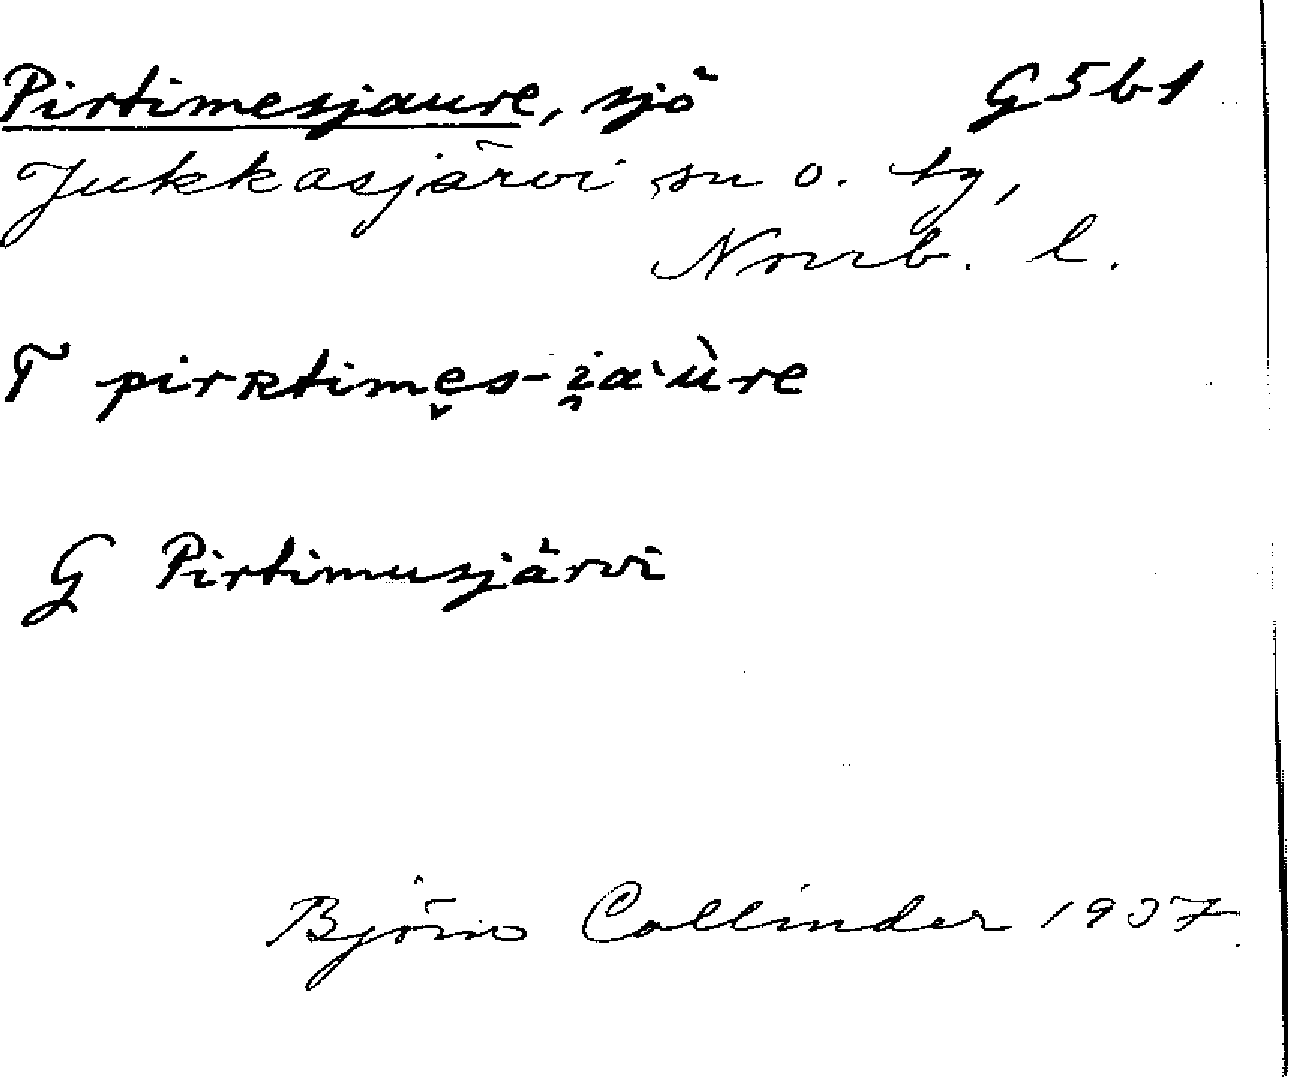 Pirtimesjaure, sjö G5b1
Jukkasjärvi sn o. tg,
Norrb. l.
T
G Pirtimusjärvi
Björn Collinder 1937